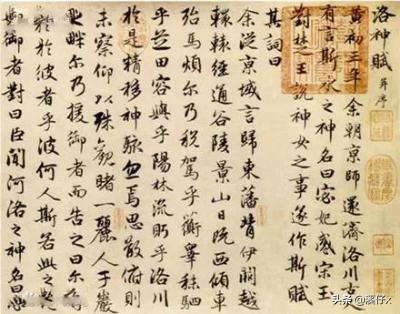 洛神賦 并序
黃初三年余朝京師還濟洛川古
有言斯水之神名曰宓妃感宋玉
對楚王說神女之事遂作斯賦
其詞曰
余從京域言歸東藩背伊闕越
轘轅經通谷陵景山日既西傾車
殆馬煩尔乃稅駕乎蘅皋秣駟
乎芝田容與乎陽林流眄乎洛川
於是精移神駭忽焉思散俯則
未察仰以殊觀睹一麗人于巖
之畔尔乃援御者而告之曰尔有
覿於彼者乎彼何人斯若此之
御者對曰臣聞河洛之神名曰宓
头条